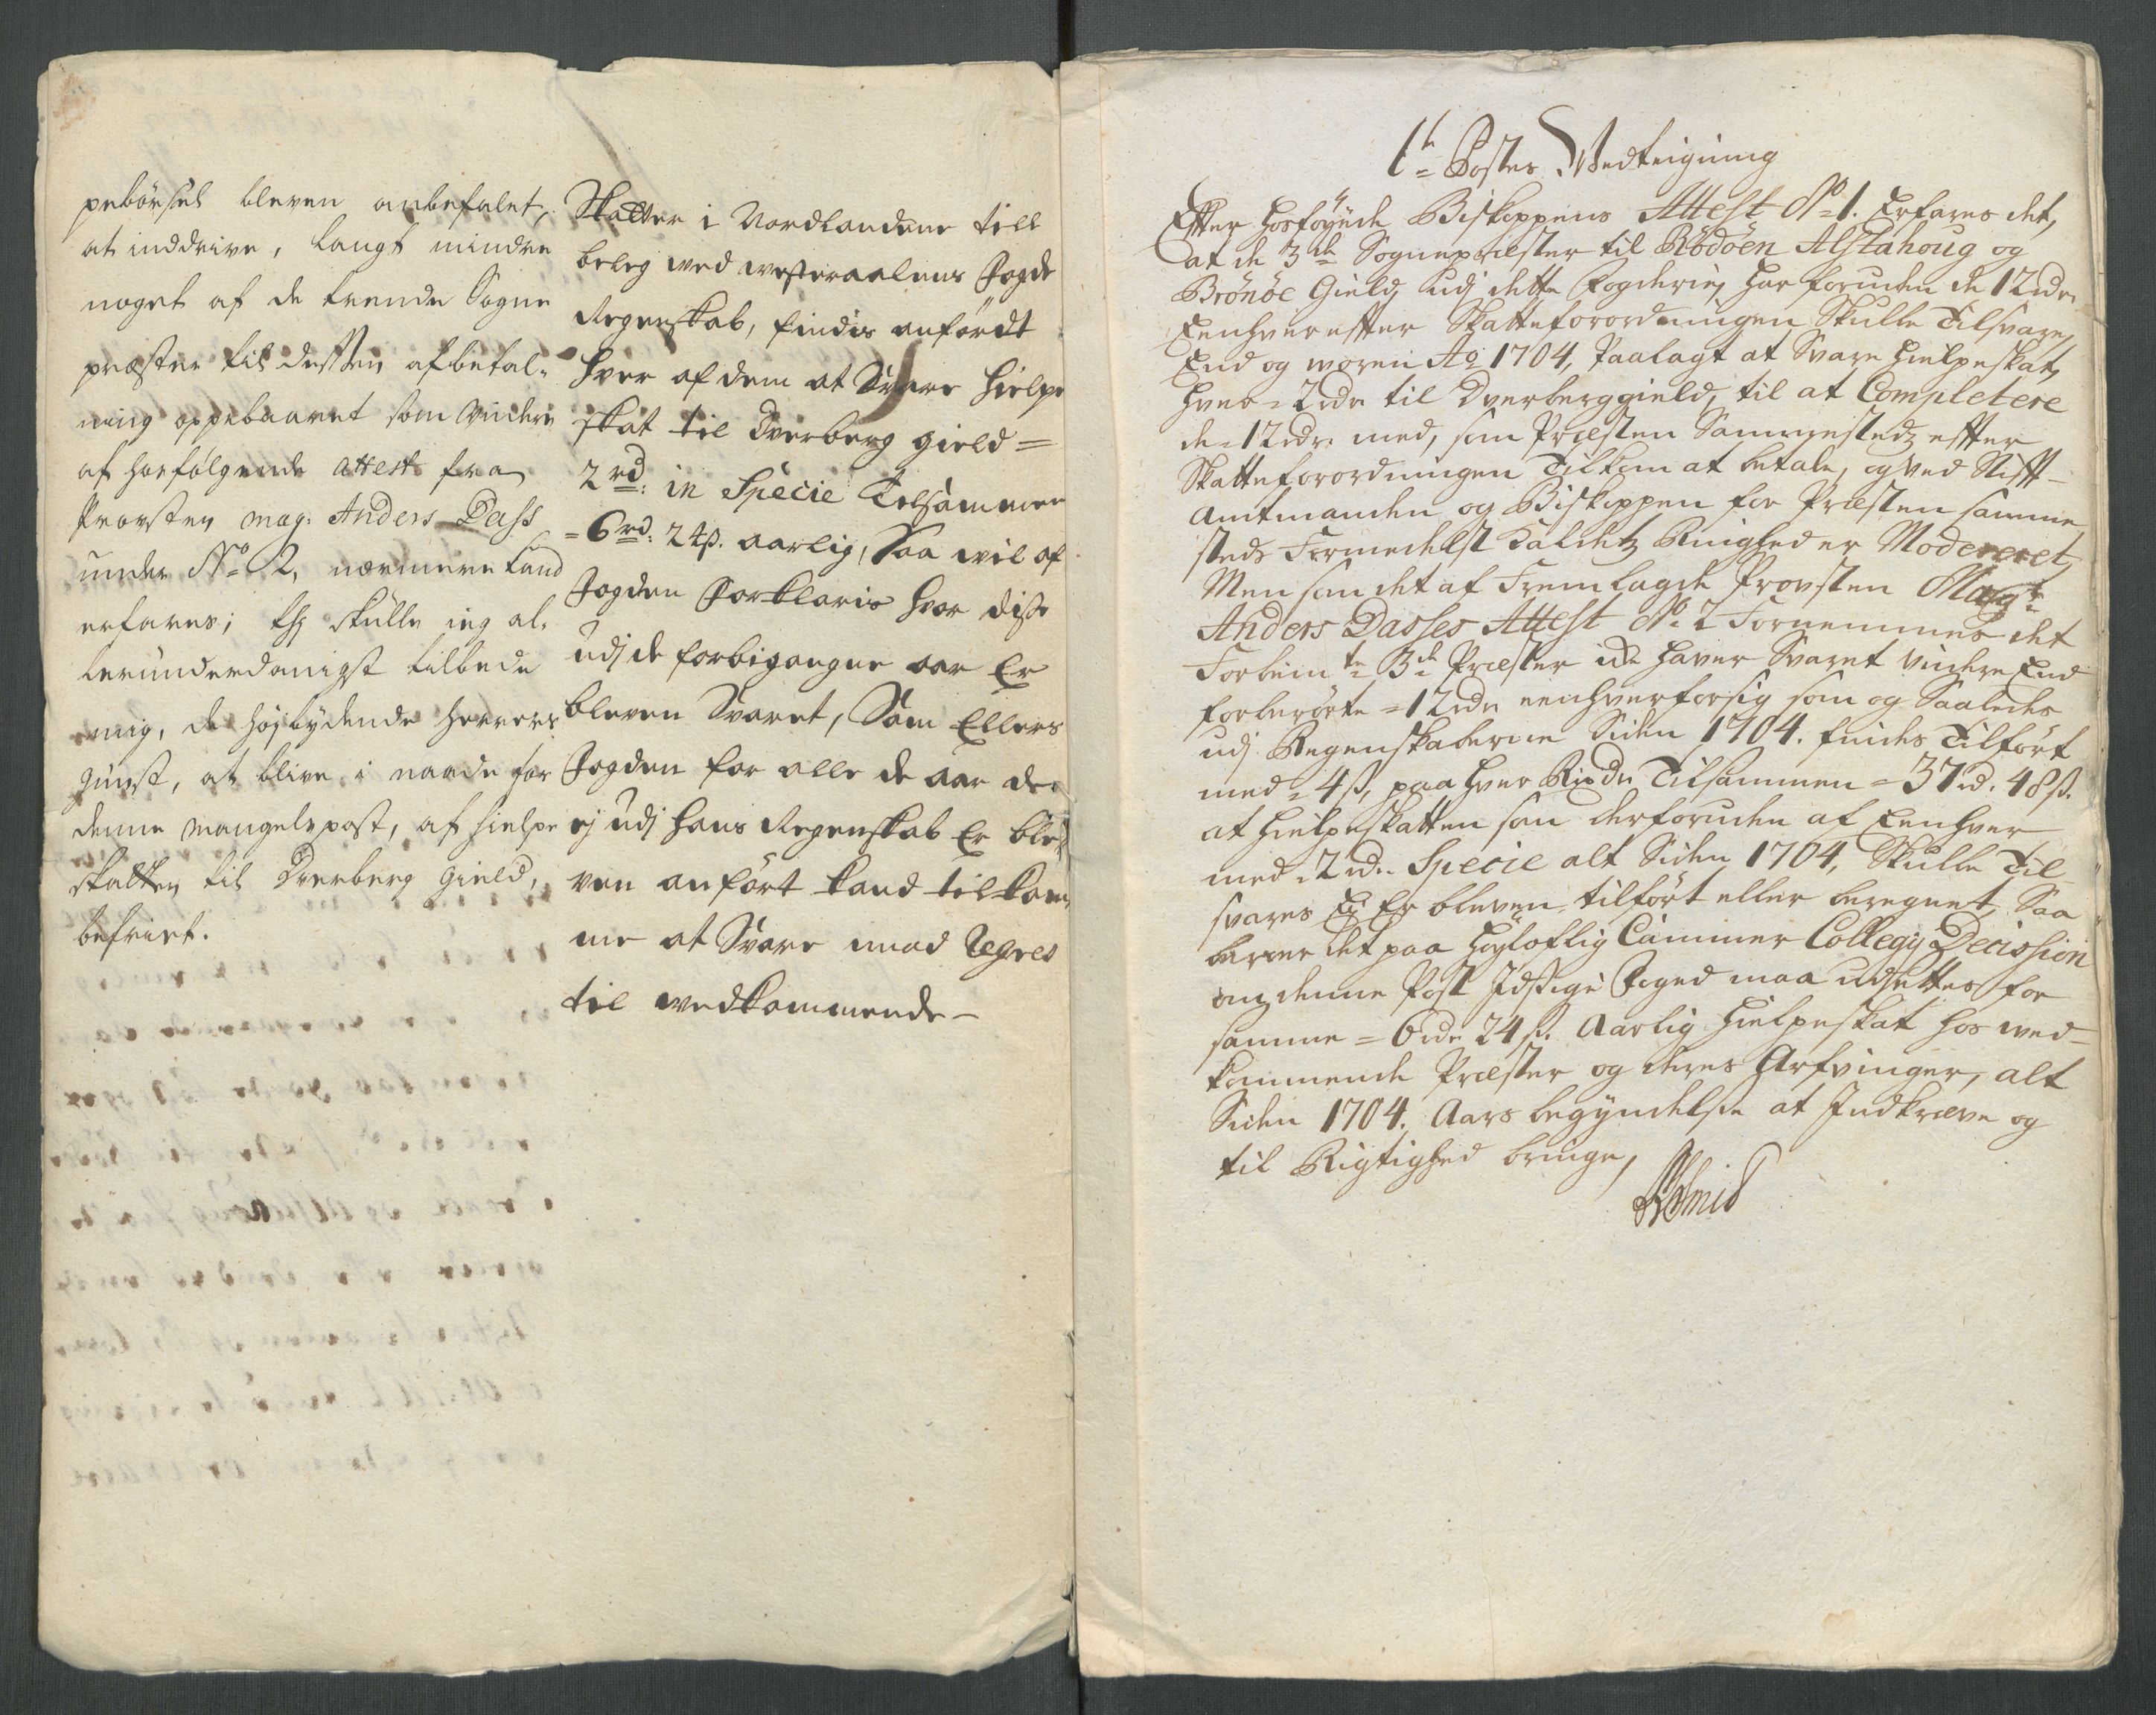 pebørsel bleven anbefalet,
at inddrive, langt mindre
noget af de trende Sogne
præster til dessen afbetal-
ning oppebaaret som videre
af hosfølgende attest fra
Provsten Mag: Anders Dass
under No 2, nærmere kand
erfares; thj skulle ieg al-
lerunderdanigst tilbede
mig, de høybydende herrers
gunst, at blive i naade for
denne Mangels post, af hielpe
skatten til Dverberg gield,
befriet.
Skatter i Nordlandene till
beleg med westeraalens Fogde
Regenskab, findis anfördt
hver af dem at Svare hielpe
skat til Dverberg gield =
2 rd: in Specie Tilsammen
= 6 rd: 24 ß. aarlig, Saa wil af
Fogden Forklaris hvor disse
udj de forbigangne aar Er
bleven Svaret, Som Ellers
Fogden for alle de aar de
ej udj hans Regenskab Er ble-
ven anført kand tilkom-
me at Svare mod Regres
til wedkommende -
1te Postes Vedteigning
Efter hosføyede Biskoppens Attest No 1. Erfares det,
at de 3de Sognepræster til Rödöen Alstahoug og
Brönöe Gield, udj dette Fogderie, har foruden de 12 rdr
Eenhver effter Skatteforordningen Skulle Tilsvare,
End og woren Ao 1704, Paalagt at Svare hielpeskat,
hver = 2 rdr til Dverberggield, til at Completere
de = 12 rdr med, som Præsten Sammestedz effter
Skatteforordningen Tilkom at betale, og ved Stifft-
amtmanden og Biskoppen for Præsten samme
steds Formedelst Kaldetz Ringhed er Modereret,
Men som det af Fremlagde Provsten Magr
Anders Dasses Attest No 2 Fornemmes det
Forbemte 3de Præster icke haver Svaret videre End
forberörte = 12 rdr eenhver for sig som og Saaledes
udj Regenskaberne Siden 1704. findes Tilført
med = 4 ß, paa hver Rixdr Tilsammen = 37 rd. 48 ß.
at hielpeskatten som derforuden af Eenhver
med = 2 rdr Specie alt Siden 1704, Skulle Til-
svares Ej Er bleven tilført eller beregnet, Saa
beroer det paa Høyloflig Cammer Collegij Decission
om denne Post Idstige Foged maa udsettes for
samme = 6 rdr 24 ß. Aarlig hielpeskat hos wed-
kommende Præster og deres Arfvinger, alt
Siden 1704. Aars begyndelse at Indkræve og
til Rigtighed bringe,